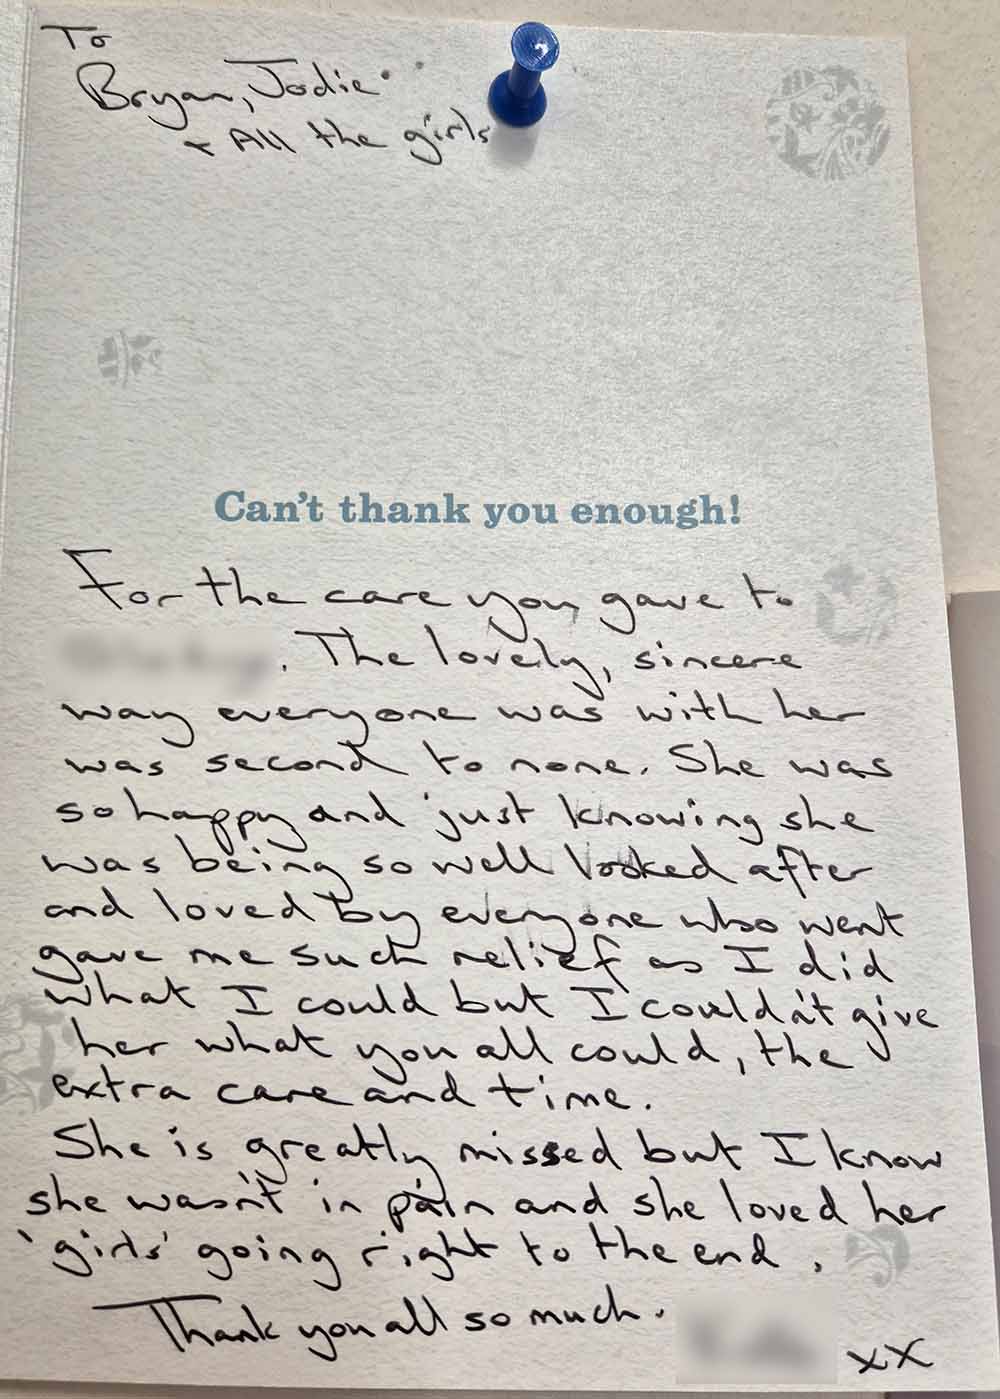 To
Bryan, Jodie
+ All the girls
Can't thank you enough!
For the care you gave to
. The lovely, sincere
way everyone was with her
was second to none. She was
so happy and just knowing she
was being so well looked after
and loved by everyone who went
gave me such relief as I did
what I could but I couldn't give
her what you all could, the
extra care and time.
She is greatly missed but I know
she wasn't in pain and she loved her
'girls' going right to the end.
Thank you all so much.
xx